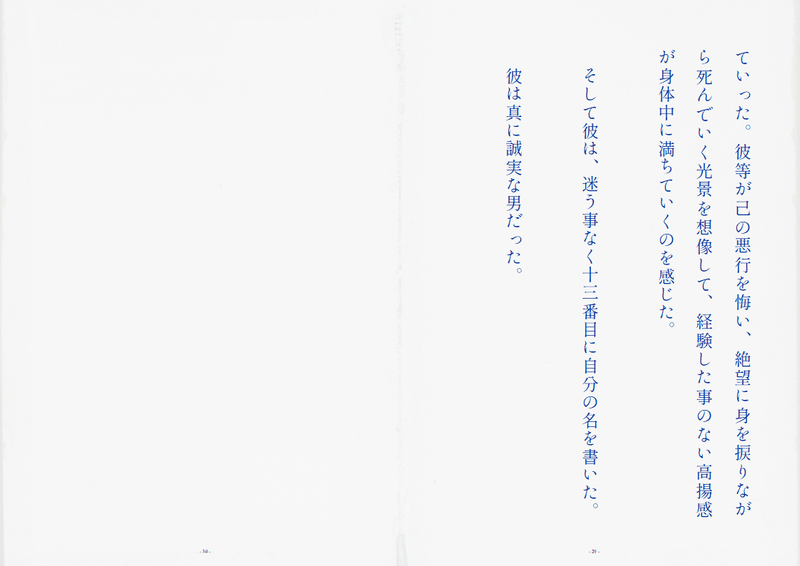 ていった。彼等が己の悪行を悔い、絶望に身を捩りなが
ら死んでいく光景を想像して、経験した事のない高揚感
が身体中に満ちていくのを感じた。
そして彼は、迷う事なく十三番目に自分の名を書いた。
彼は真に誠実な男だった。